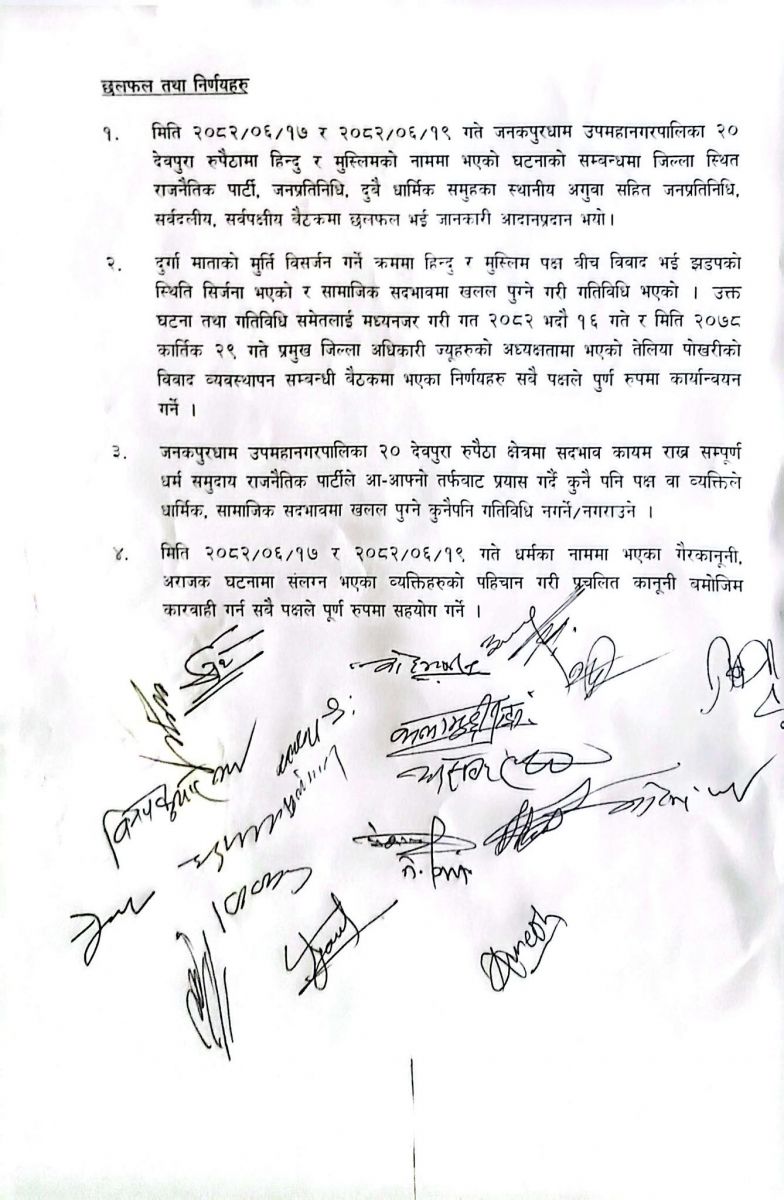 छलफल तथा निर्णयहरु
१. मिति २०८२/०६/१७ र २०८२/०६/१९ गते जनकपुरधाम उपमहानगरपालिका २०
देवपुरा रुपैठामा हिन्दु र मुस्लिमको नाममा भएको घटनाको सम्बन्धमा जिल्ला स्थित
राजनैतिक पार्टी, जनप्रतिनिधि, दुवै धार्मिक समुहका स्थानीय अगुवा सहित जनप्रतिनिधि,
सर्वदलीय, सर्वपक्षीय बैटकमा छलफल भई जानकारी आदानप्रदान भयो।
२. दुर्गा माताको मुर्ति विसर्जन गर्ने क्रममा हिन्दु र मुस्लिम पक्ष वीच विवाद भई झडपको
स्थिति सिर्जना भएको र सामाजिक सदभावमा खलल पुग्ने गरी गतिविधि भएको । उक्त
घटना तथा गतिविधि समेतलाई मध्यनजर गरी गत २०८२ भदौ १६ गते र मिति २०७८
कार्तिक २९ गते प्रमुख जिल्ला अधिकारी ज्यूहरुको अध्यक्षतामा भएको तेलिया पोखरीको
विवाद व्यवस्थापन सम्बन्धी बैटकमा भएका निर्णयहरु सवै पक्षले पुर्ण रुपमा कार्यान्वयन
गर्ने ।
३. जनकपुरधाम उपमहानगरपालिका २० देवपुरा रुपैठा क्षेत्रमा सदभाव कायम राख्न सम्पूर्ण
धर्म समुदाय राजनैतिक पार्टीले आ-आफ्नो तर्फवाट प्रयास गर्दै कुनै पनि पक्ष वा व्यक्तिले
धार्मिक, सामाजिक सदभावमा खलल पुग्ने कुनैपनि गतिविधि नगर्ने/नगराउने ।
४. मिति २०८२/०६/१७ र २०८२/०६/१९ गते धर्मका नाममा भएका गैरकानूनी,
अराजक घटनामा संलग्न भएका व्यक्तिहरुको पहिचान गरी प्रचलित कानूनी वमोजिम
कारवाही गर्न सवै पक्षले पूर्ण रुपमा सहयोग गर्ने ।